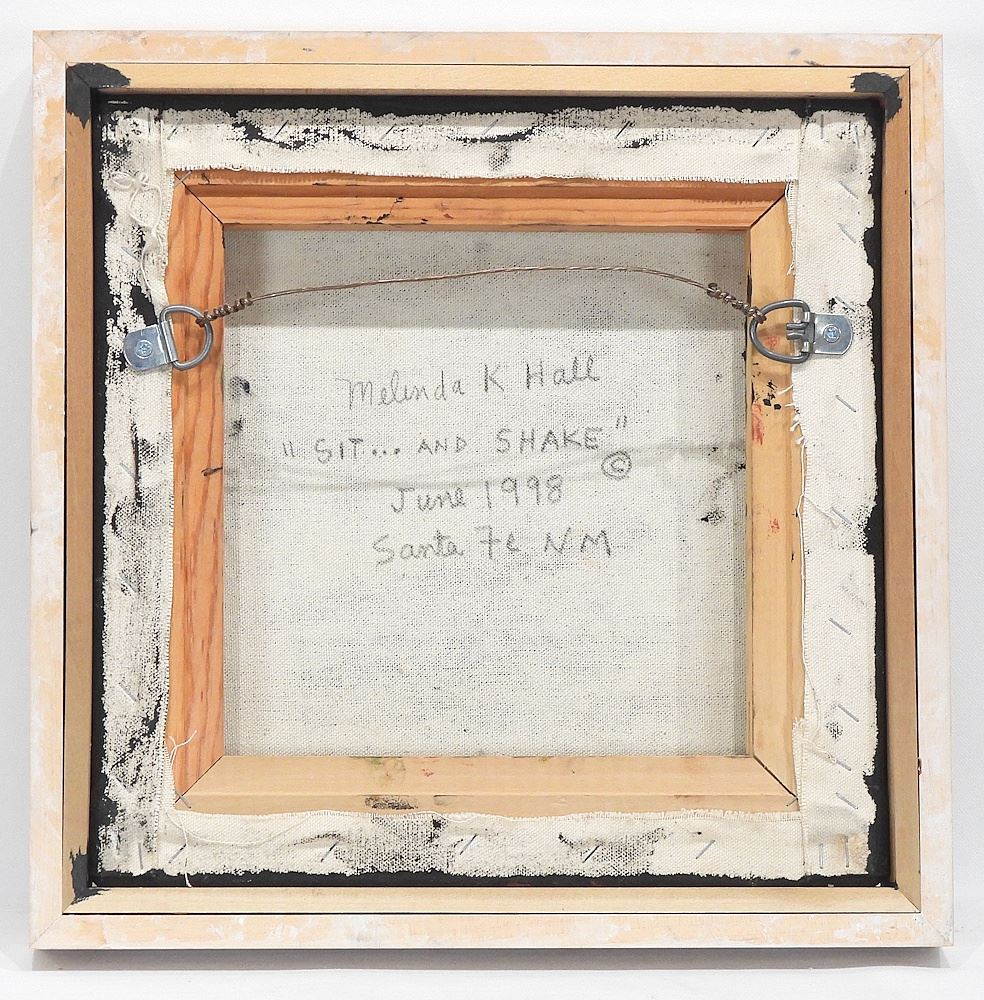 Melinda K Hall
"SIT... AND SHAKE" ©
June 1998
Santa Fe NM